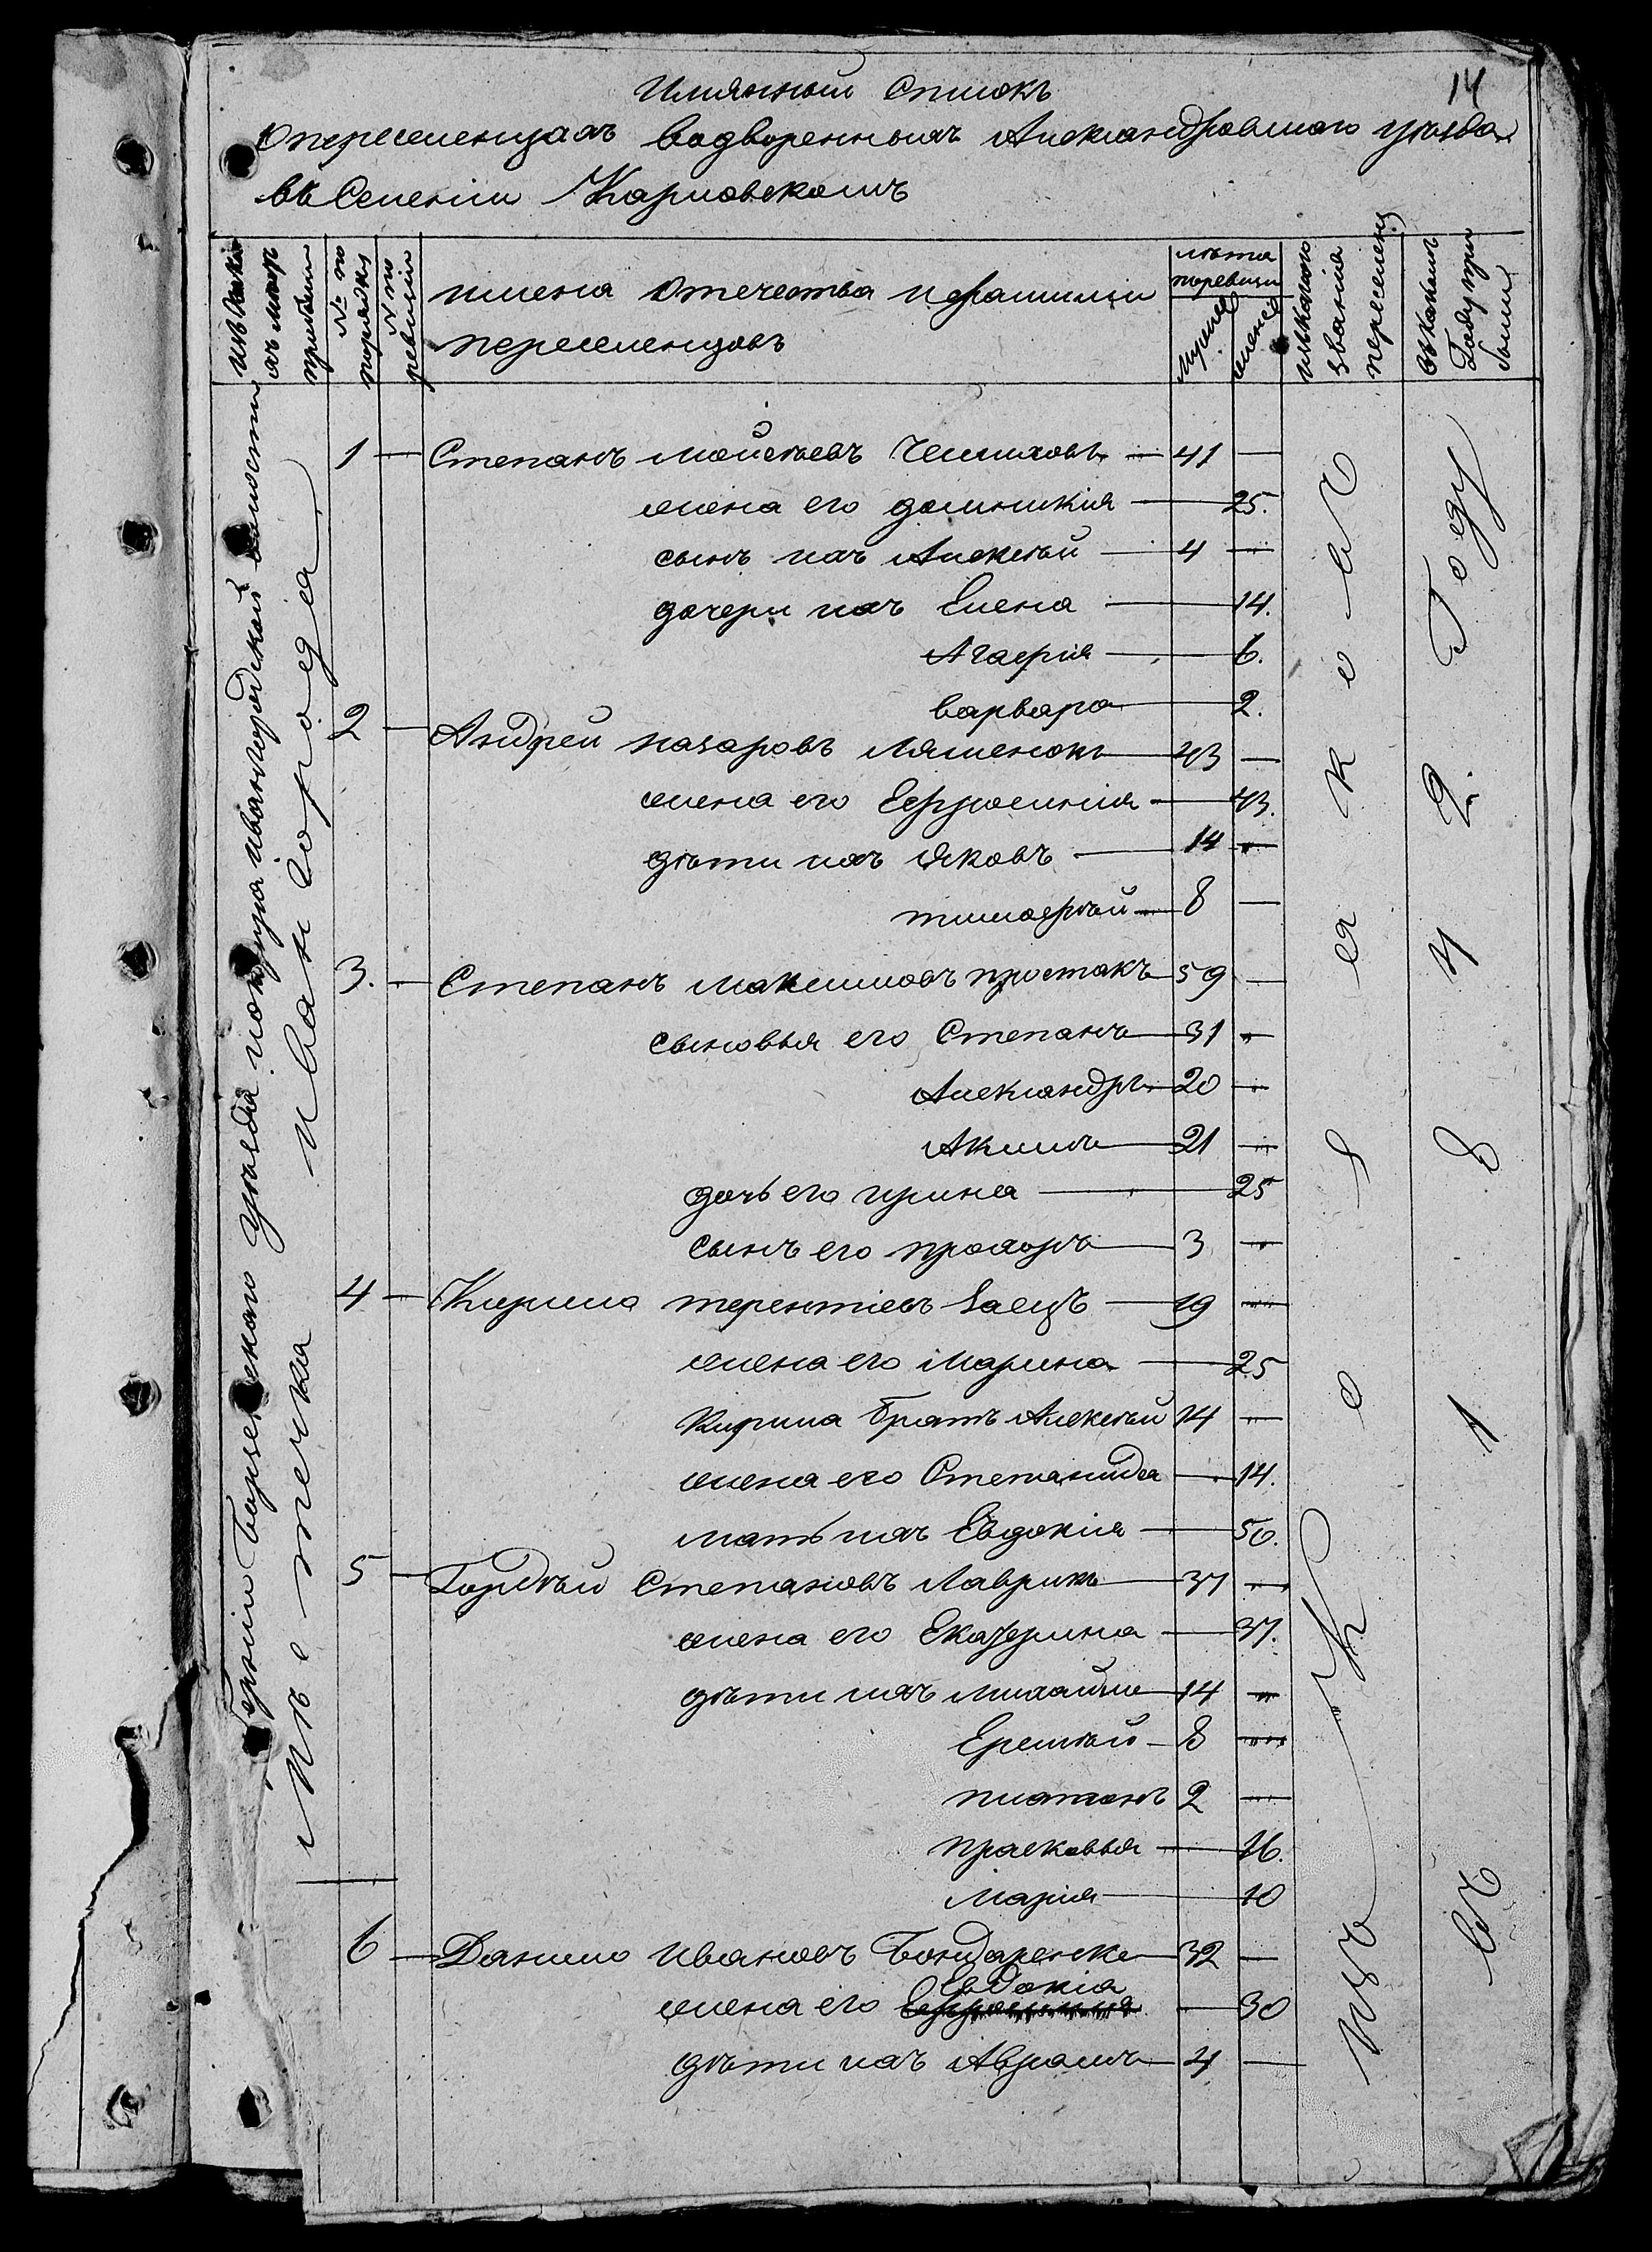 14
Имянный Списокъ
О переселенцахъ водворенныхъ Александровского уѣзда
въ Селеніи Карловскомъ
изъ какихъ мѣстъ прибыли
№ по порядку
№ по ревизіи
имена отечества и фамиліи переселенцовъ
лѣта по ревизіи
мужеска
женска
изъ какого званія переселенцы
въ какомъ Году прибыли
Губерніи Борзенского уѣзда изъ ивангородской волости
Мѣстечка ивангорода
1 — Степанъ Мойсѣевъ — 41 —
жена его домникія — 25.
сынъ ихъ Алексѣй — 4 —
дочери ихъ Елена — 14.
Агафія — 6.
варвара — 2.
2 — Андрей назаровъ Ляшенокъ — 43 —
жена его Ефросинія — 43.
дѣти ихъ Яковъ — 14 —
тимофѣй — 8 —
3. — Степанъ Максимовъ простакъ — 59 —
сыновья его Степанъ — 31 —
Александръ — 20 —
Акимъ — 21 —
дочь его ирина — 25
сынъ его прохоръ — 3 —
4 — Кирило терентіевъ Заецъ — 19 —
жена его Марина — 25
Кирила братъ Алексѣй 14 —
жена его Степанида — 14.
мать ихъ Евдокія — 50.
5 — Гордѣй Степановъ Лаврикъ — 37 —
жена его Екатерина — 37.
дѣти ихъ михайло — 14 —
Еремѣй — 8 —
платонъ 2 —
прасковья — 16.
Марія — 10
6 — Данило Ивановъ Бондаренко — 32 —
Евдокіа
жена его Ефросинія — 30
дѣти ихъ Аврамъ — 4 —
Изъ Козаковъ
въ 1842. Году